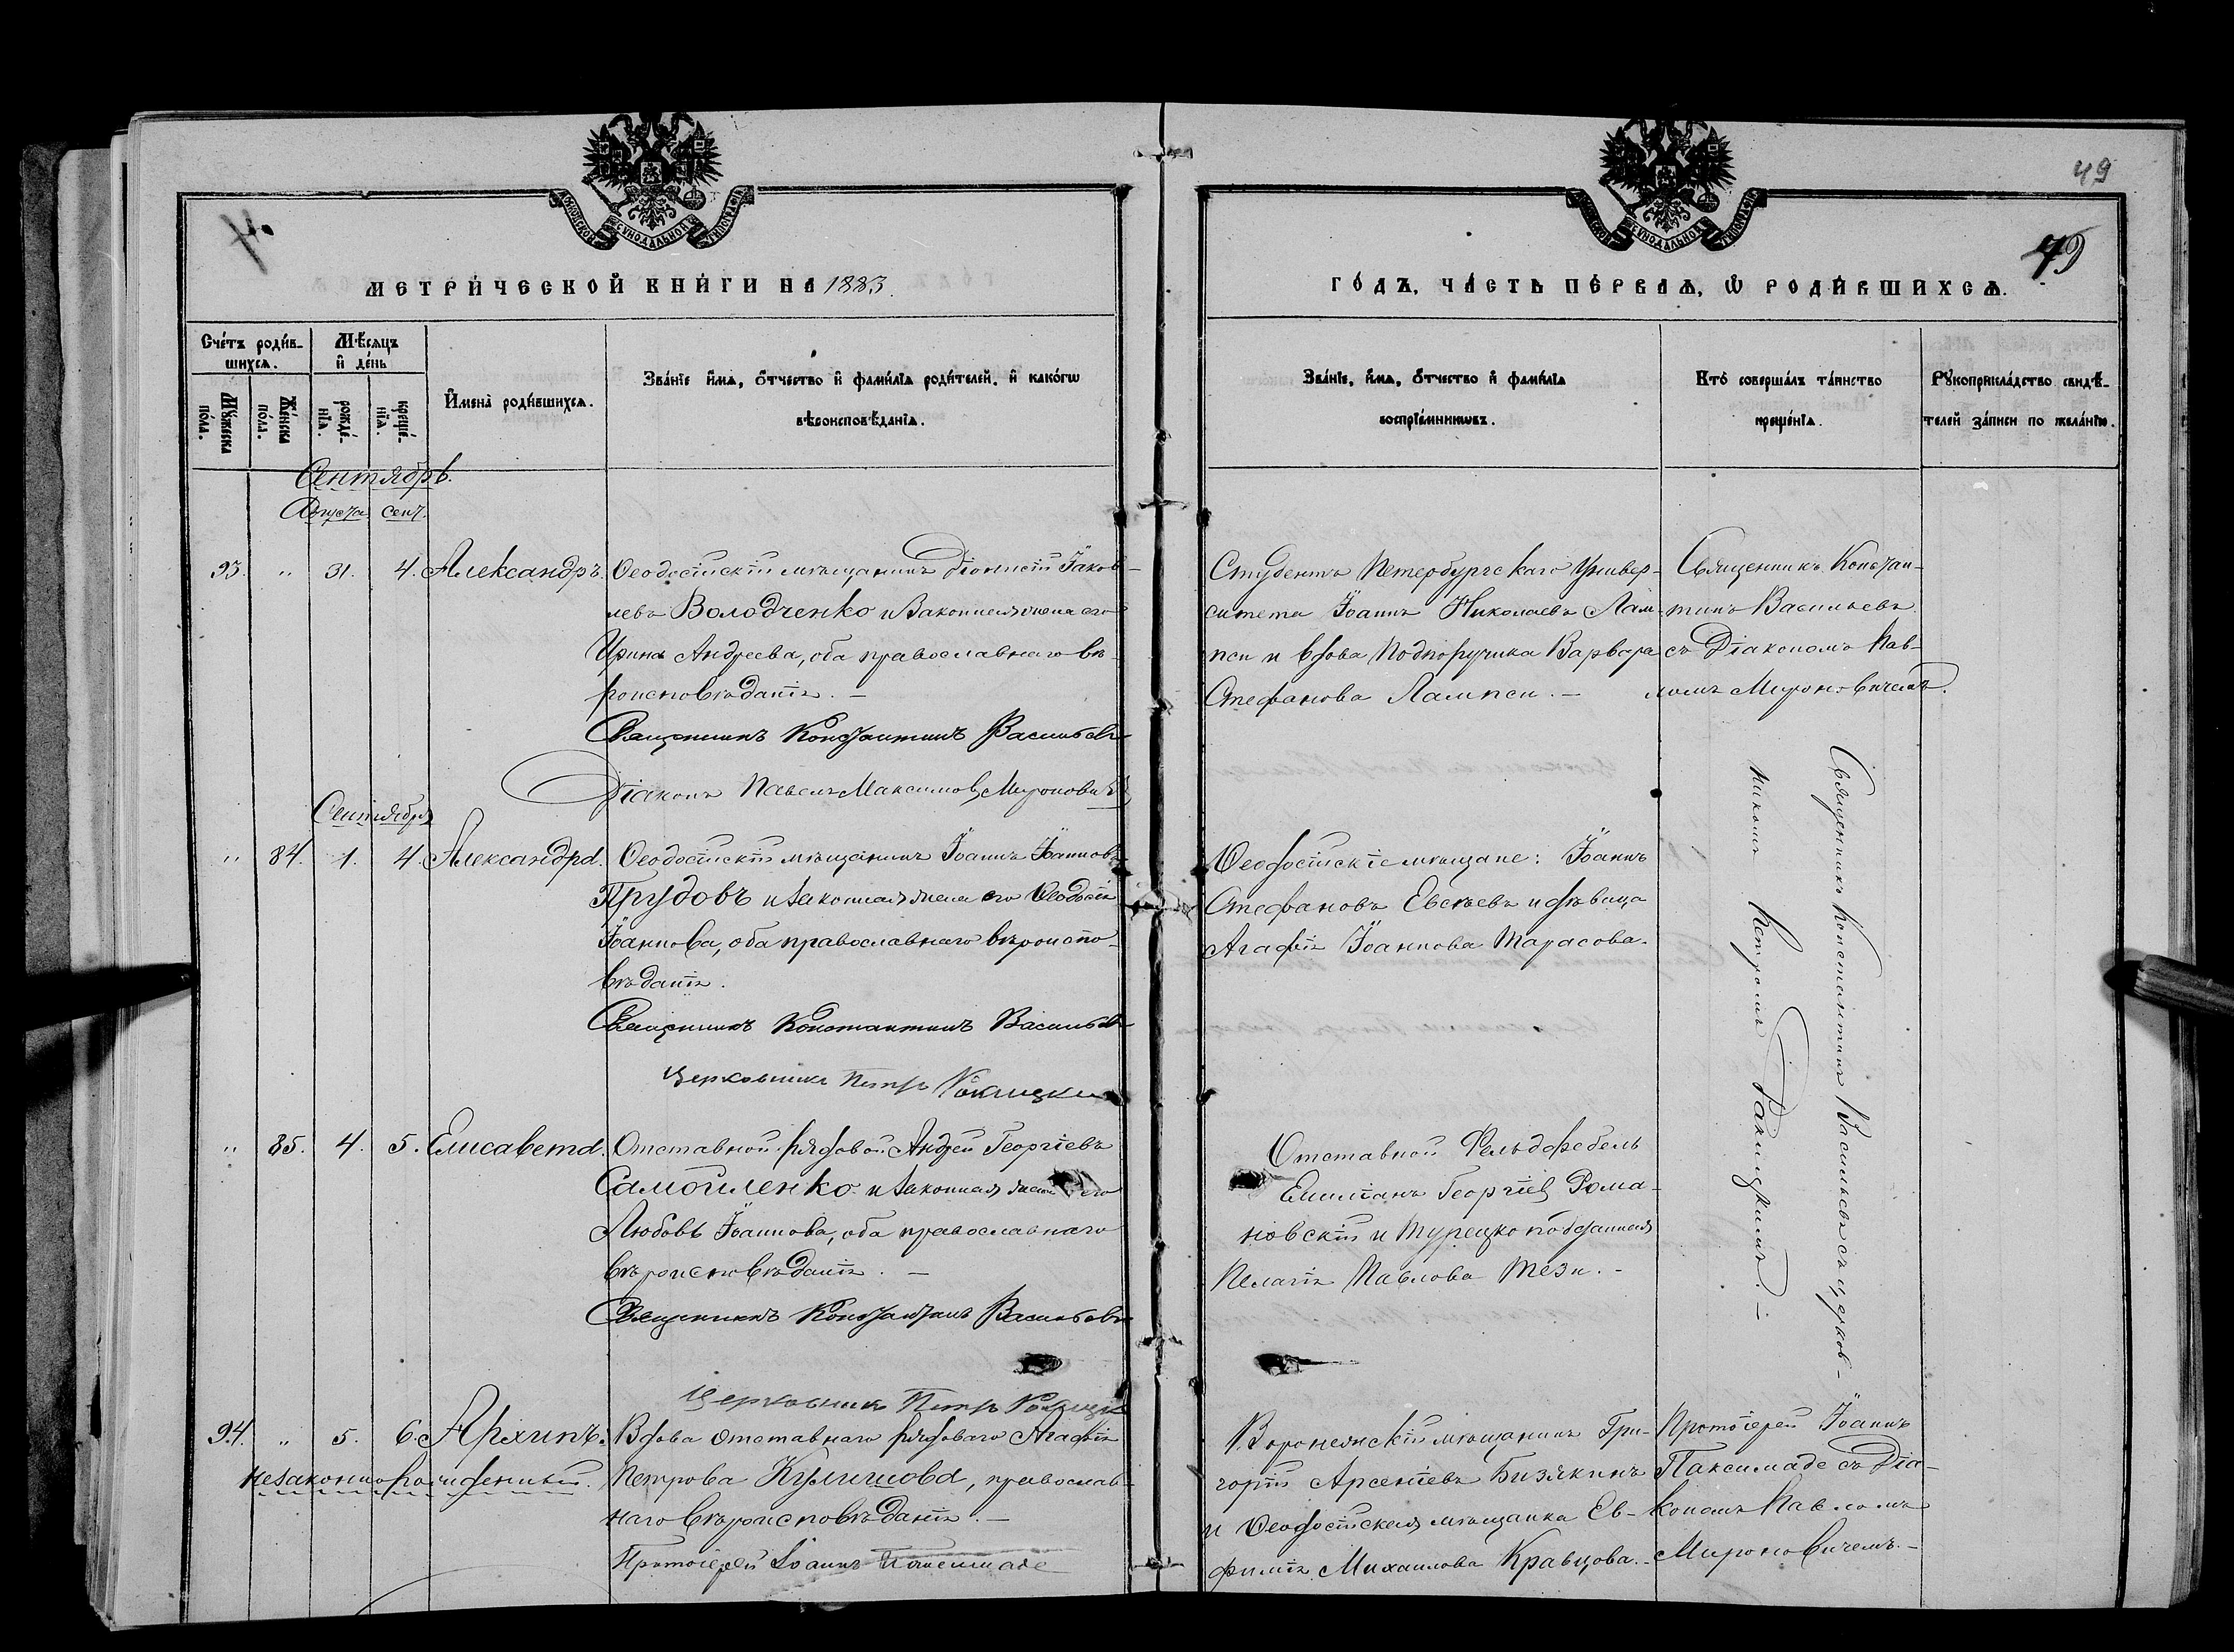 49
49
МЕТРИЧЕСКОЙ КНИГИ НА 1883.
ГОДЪ, ЧАСТЬ ПЕРВАЯ, Ѡ РОДИВШИХСЯ.
Счетъ родив-
шихся.
Мужеска пола.
Женска пола.
Мѣсяцъ
и день
рожде-
нія.
креще-
нія.
Имена родившихся.
Званіе имя, отчество и фамилія родителей, и какогѡ
вѣроисповѣданія.
Званіе, имя, отчество и фамилія
воспріемниковъ.
Кто совершалъ таинство
крещенія.
Рукоприкладство свидѣ-
телей записи по желанію.
Сентябрь.
Августа Сент.
93. " 31. 4. Александръ.
Ѳеодосійскій мѣщанинъ Діонисій Іаков-
левъ Володченко и законная жена его
Ирина Андреева, оба православнаго вѣ-
роисповѣданія. —
Священникъ Константинъ Васильевъ
Діаконъ Павелъ Максимовъ Мироновичъ
Студентъ Петербургскаго Универ-
ситета Іоаннъ Николаевъ Лам-
пси и вдова Подпоручика Варвара
Стефанова Лампси. —
Священникъ Констан-
тинъ Васильевъ
съ Діакономъ Пав-
ломъ Мироновичемъ.
Сентября
" 84. 1. 4. Александра.
Ѳеодосійскій мѣщанинъ Іоаннъ Іоанновъ
Прудовъ и законная жена его Ѳеодосія
Іоаннова, оба православнаго вѣроиспо-
вѣданія.
Священникъ Константинъ Васильевъ
Церковникъ Петръ
Ѳеодосійскіе мѣщане: Іоаннъ
Стефановъ Евсѣевъ и дѣвица
Агафія Іоаннова Тарасова.
Священникъ Константинъ Васильевъ съ церков-
никомъ Петромъ
" 85. 4. 5. Елисавета.
Отставной рядовой Андрей Георгіевъ
Самойленко и законная жена его
Любовь Іоаннова, оба православнаго
вѣроисповѣданія. —
Священникъ Константинъ Васильевъ
Церковникъ Петръ
Отставной Фельдфебель
Емиліанъ Георгіевъ Рома-
новскій и Турецко подданная
Пелагія Павлова Тези. —
94. " 5. 6. Архипъ.
незаконнорожденный.
Вдова отставнаго рядоваго Агафія
Петрова Кулишова, православ-
наго вѣроисповѣданія. —
Протоіерей Іоаннъ Паксимаде
Воронежскій мѣщанинъ Гри-
горій Арсеніевъ Бизякинъ
и Ѳеодосійская мѣщанка Ев-
фимія Михаилова Кравцова. —
Протоіерей Іоаннъ
Паксимаде съ Діа-
кономъ Павломъ
Мироновичемъ. —